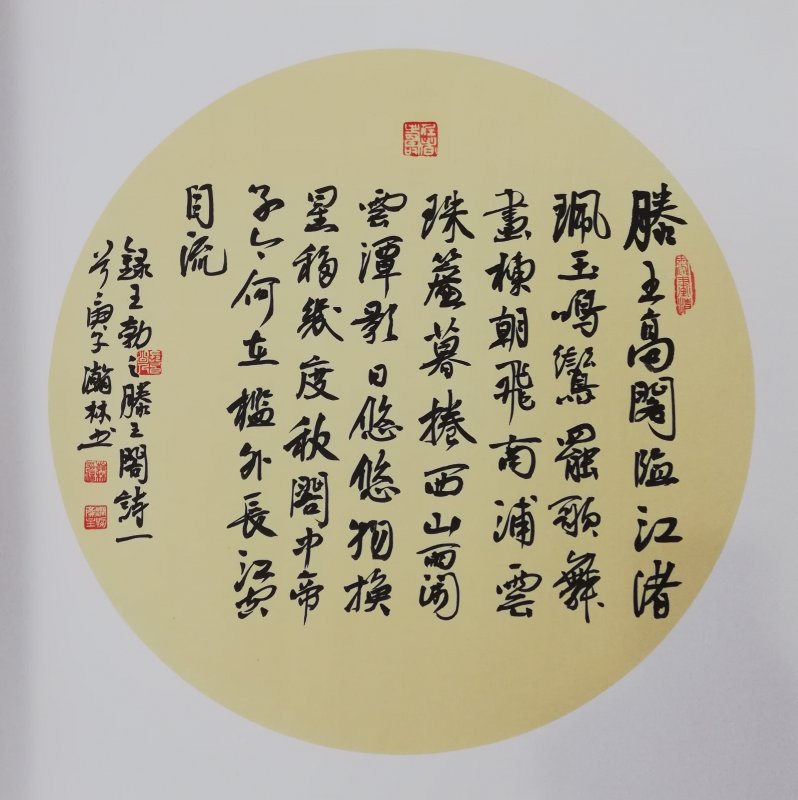 滕王高閣臨江渚
珮玉鳴鸞罷歌舞
畫棟朝飛南浦雲
珠簾暮捲西山雨閑
雲潭影日悠悠物換
星移幾度秋閣中帝
子今何在檻外長江空
自流
錄王勃之滕王閣詩一
首庚子瀚林书